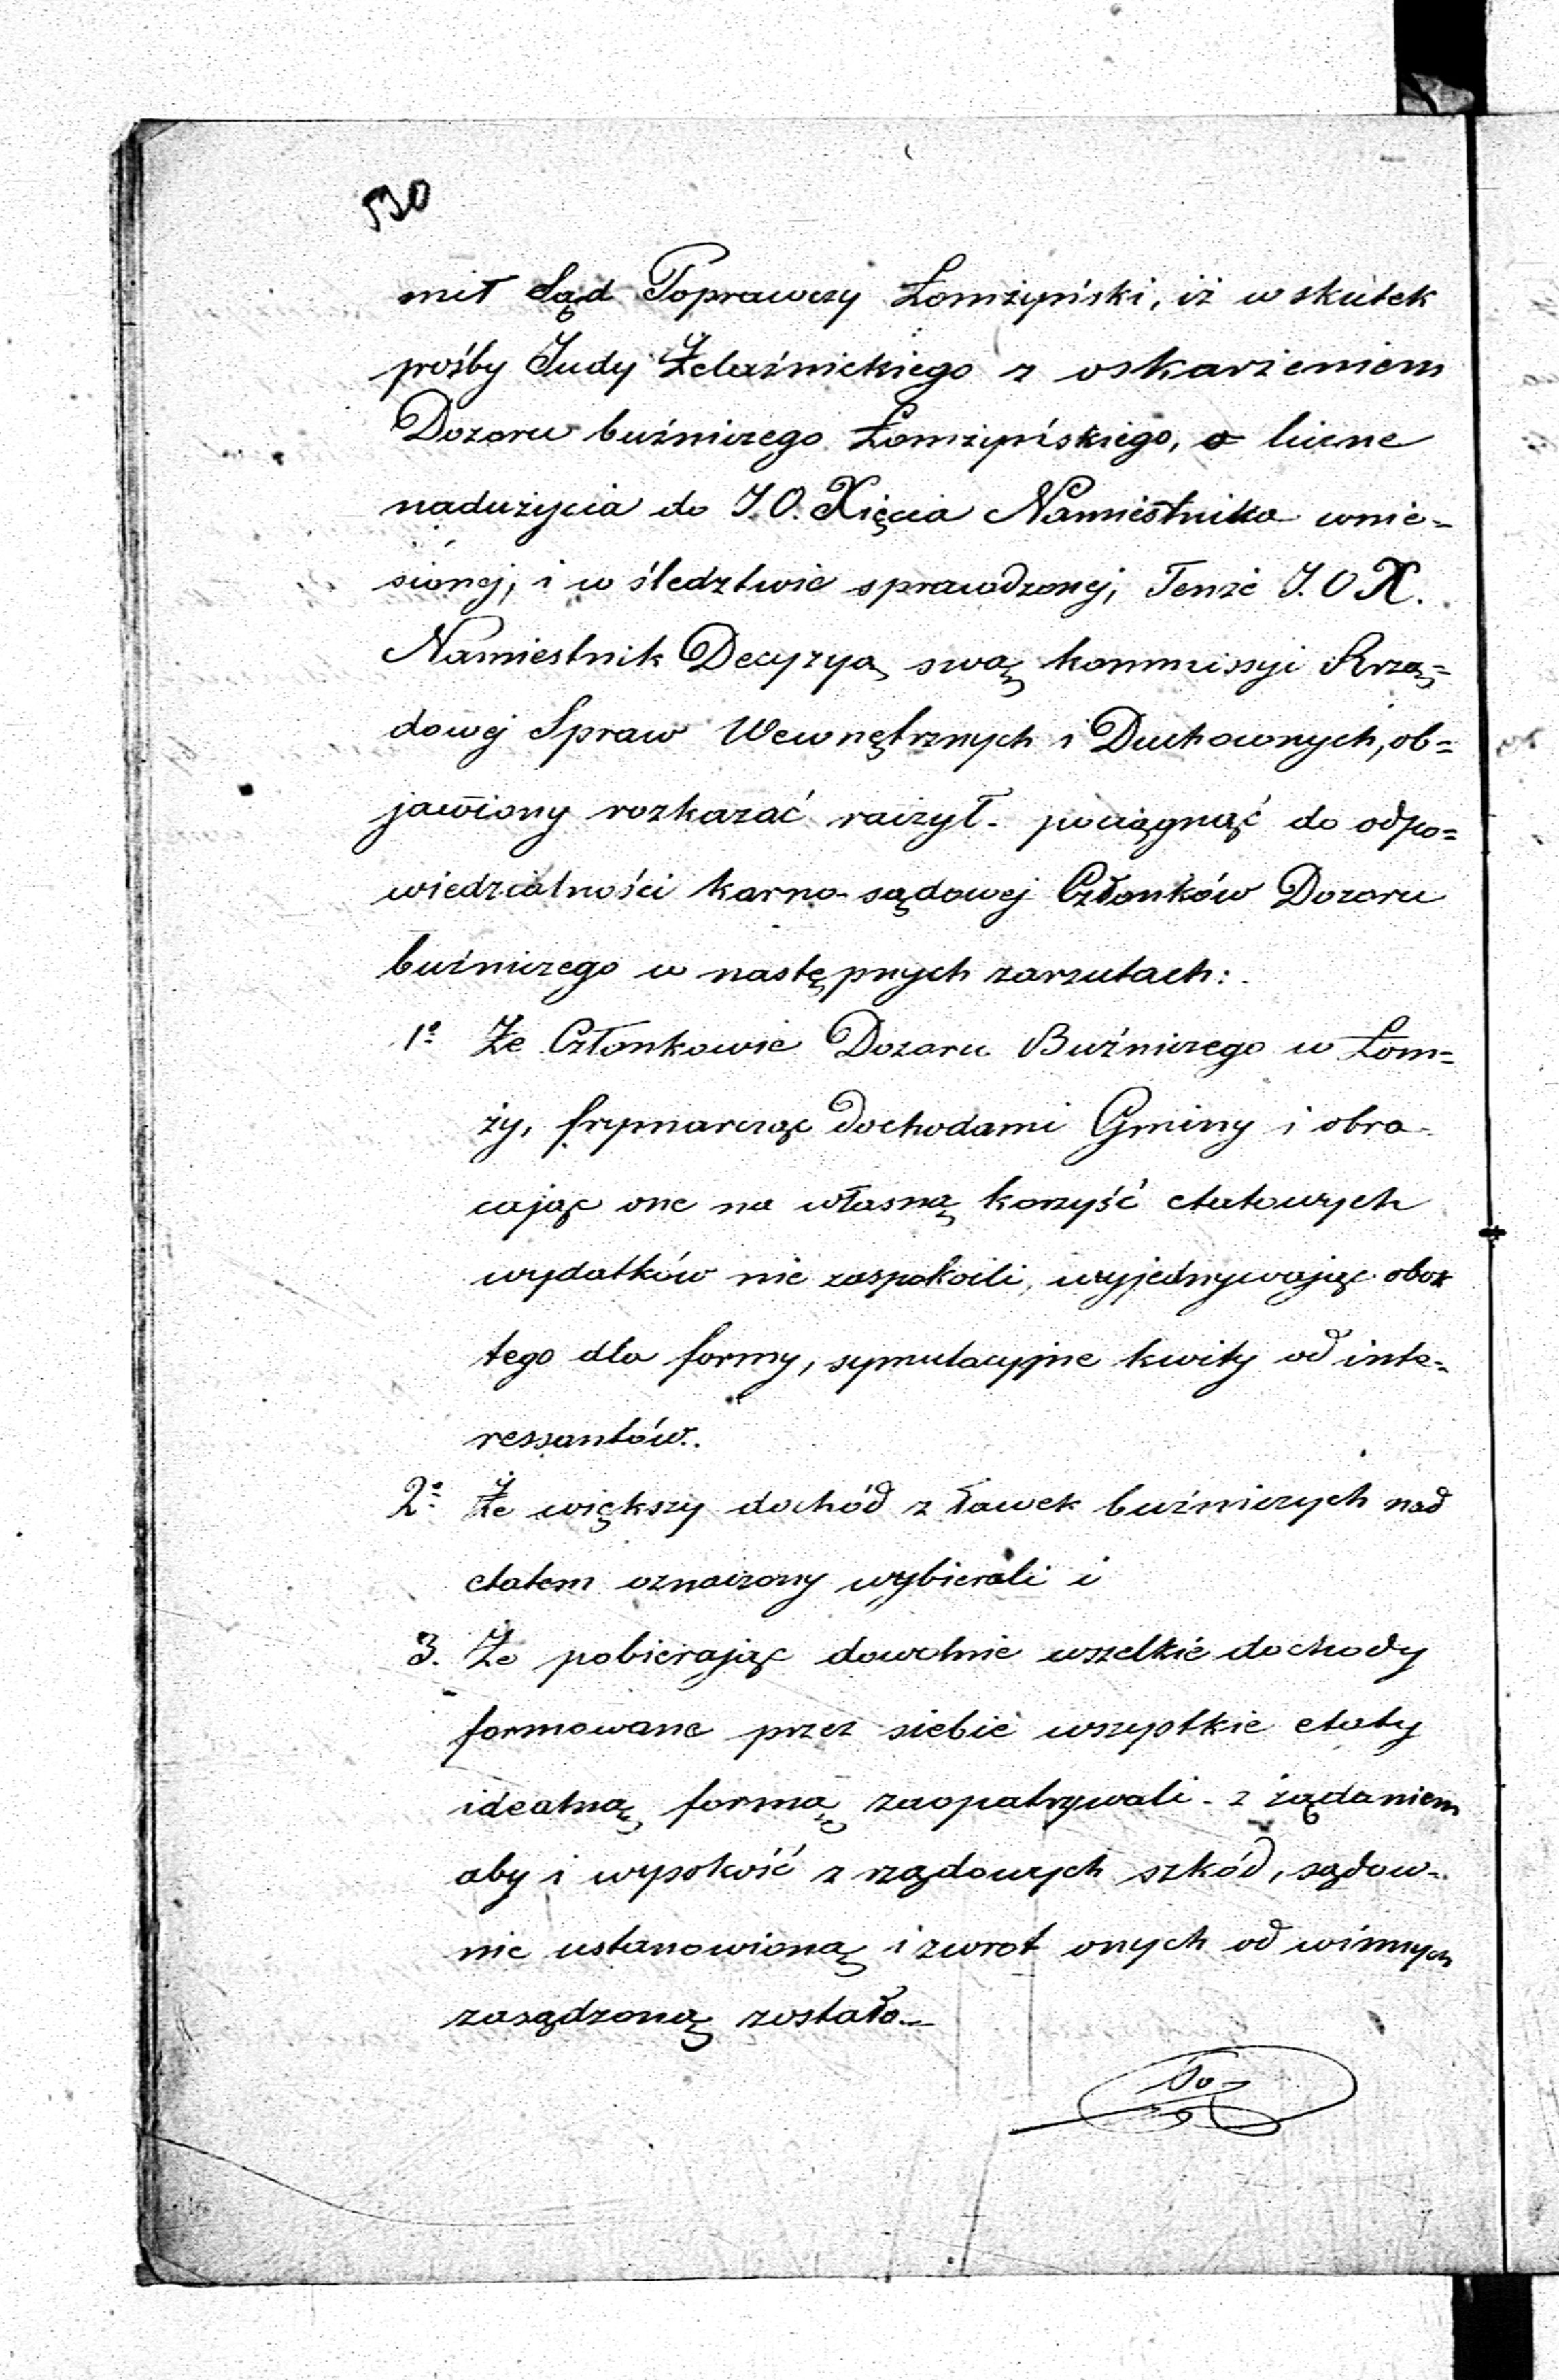 530
mił Sąd Poprawczy Łomżyński, iż w skutek
prośby Judy Żelaźnickiego z oskarżeniem
Dozoru buźniczego Łomżyńskiego, o liczne
nadużycia do J.O. Xięcia Namiestnika wnie=
sionej, i w śledztwie sprawdzonej, Tenże J.O X.
Namiestnik Decyzyą swą kommissyi Rzą=
dowej Spraw Wewnętrznych i Duchownych, ob=
jawiony rozkazać raczył - pociągnąć do odpo=
wiedzialności karno-sądowej Członków Dozoru
buźniczego w następnych zarzutach:
1o Że Członkowie Dozoru Buźniczego w Łom=
ży, frymarcząc dochodami Gminy i obra-
cając one na własną korzyść etatowych
wydatków nie zaspokoili, wyjednywając obok
tego dla formy, symulacyjne kwity od inte-
ressantów.
2o Że większy dochód z ławek buźniczych nad
etatem oznaczony wybierali i
3. Że pobierając dowolnie wszelkie dochody
formowane przez siebie wszystkie etaty
idealną formą zaopatrywali - z żądaniem
aby i wysokość zrządowych szkód, sądow-
nie ustanowioną i zwrot onych od winnych
zasądzoną została.